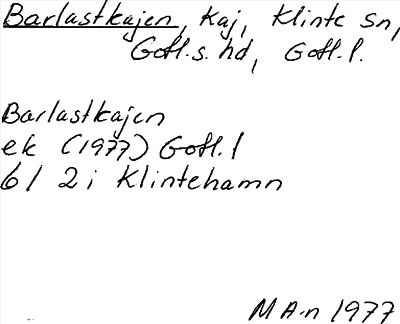 Barlastkajen, Kaj, Klinte sn,
Gotl.s. hd, Gotl. l.
Barlastkajen
ek (1977) Gotl. l
61 2 i Klintehamn
M A-n 1977